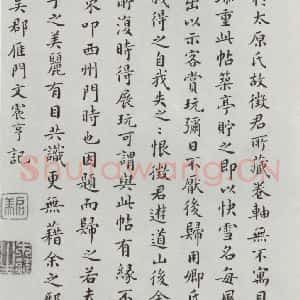 於太原氏故徵君所藏卷軸無不寓目
重此帖築亭貯之即以快雪名每風
出以示客賞玩彌日不厭後歸用卿氏
我得之自我失之恨徵君遊道山後余
復時得展玩可謂與此帖有緣不
叩西州門時也因題而歸之若夫
之美麗有目共識更無藉余之鄙
吳郡雁門文震亨記
Shufawang.CN